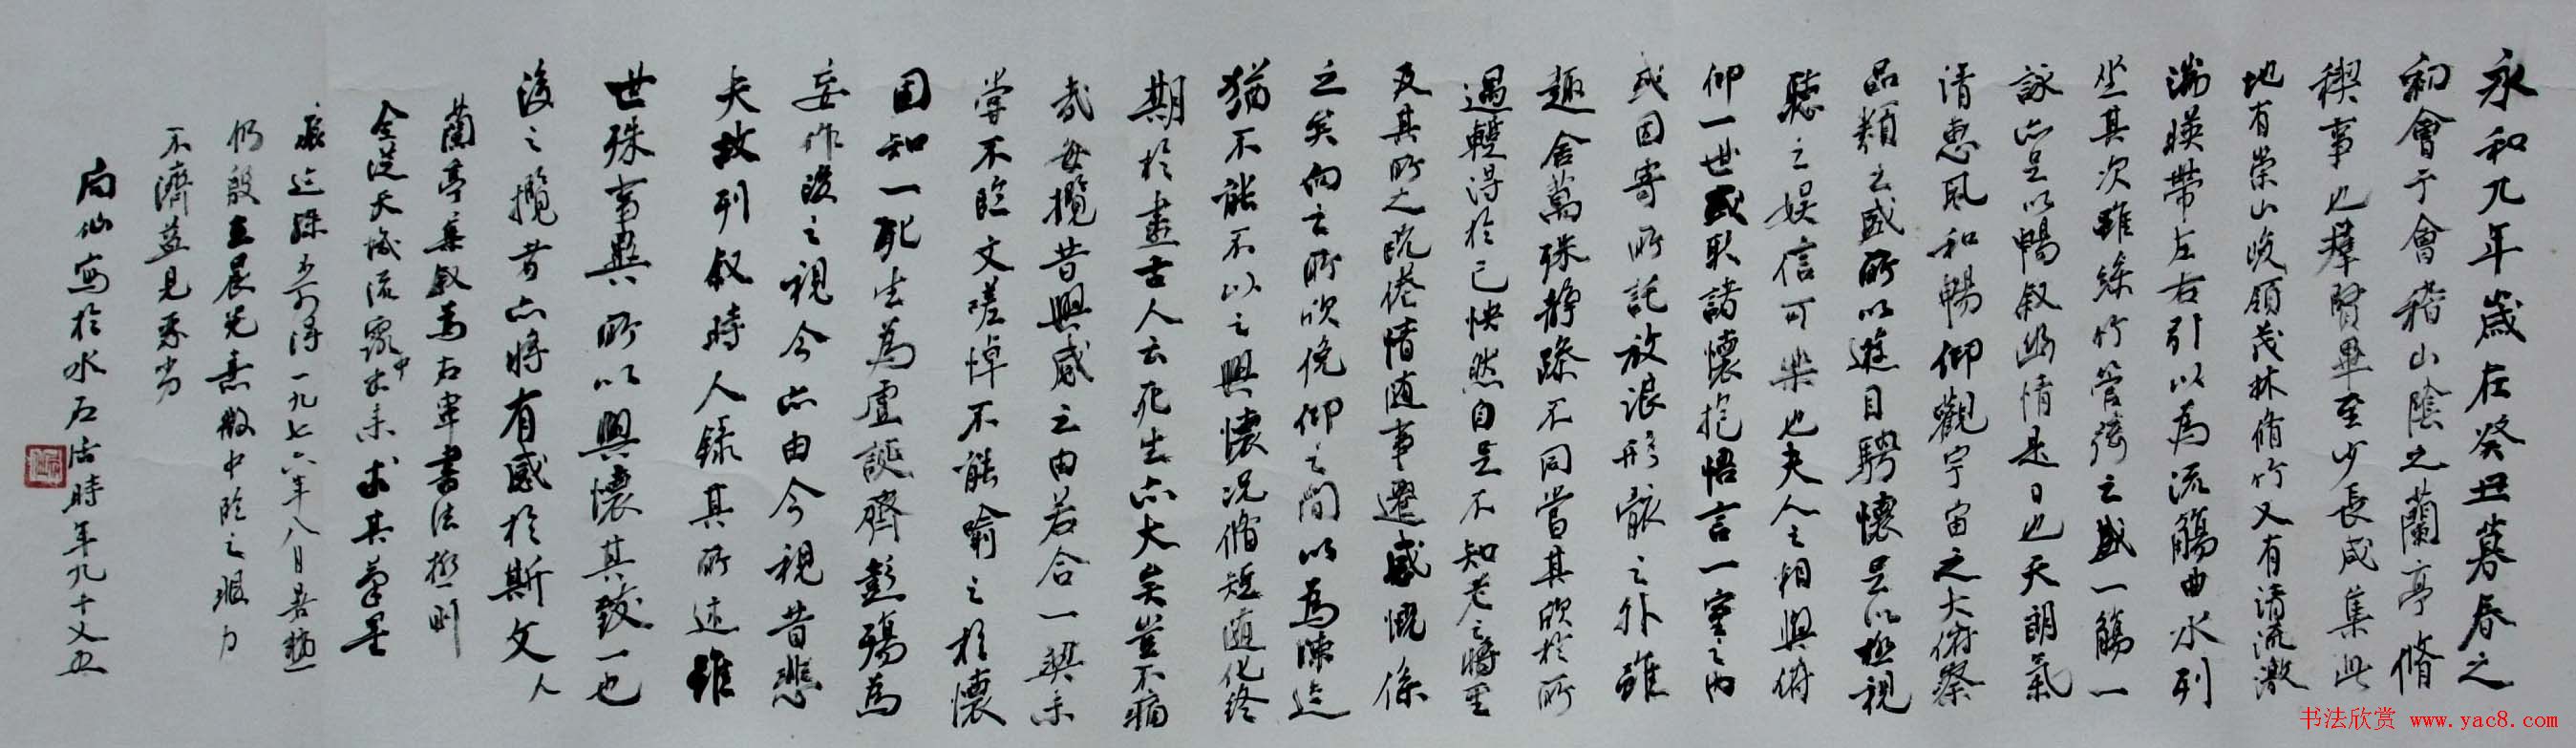 永和九年歲在癸丑暮春之
初會于會稽山陰之蘭亭脩
禊事也羣賢畢至少長咸集此
地有崇山峻領茂林脩竹又有清流激
湍暎帶左右引以為流觴曲水列
坐其次雖絲竹管弦之盛一觴一
詠亦足以暢叙幽情是日也天朗氣
清惠風和暢仰觀宇宙之大俯察
品類之盛所以遊目騁懷足以極視
聽之娛信可樂也夫人之相與俯
仰一世或取諸懷抱悟言一室之內
或因寄所託放浪形骸之外雖
趣舍萬殊靜躁不同當其欣於所
遇蹔得於己怏然自足不知老之將至
及其所之既倦情随事遷感慨係
之矣向之所欣俛仰之間以為陳迹
猶不能不以之興懷況脩短随化終
期於盡古人云死生亦大矣豈不痛
哉每攬昔興感之由若合一契未
嘗不臨文嗟悼不能喻之於懷
固知一死生為虛誕齊彭殤為
妄作後之視今亦由今視昔悲
夫故列叙時人錄其所述雖
世殊事異所以興懷其致一也
後之攬者亦將有感於斯文人
蘭亭集叙為右軍書法極則
全從天機流露中出來求其筆墨
痕迹殊不可得一九七六年八月暑熱
仍殷立晨光熹微中臨之眼力
不濟益見
局仙寫於水石居時年九十又五
书法欣赏 www.yac8.com